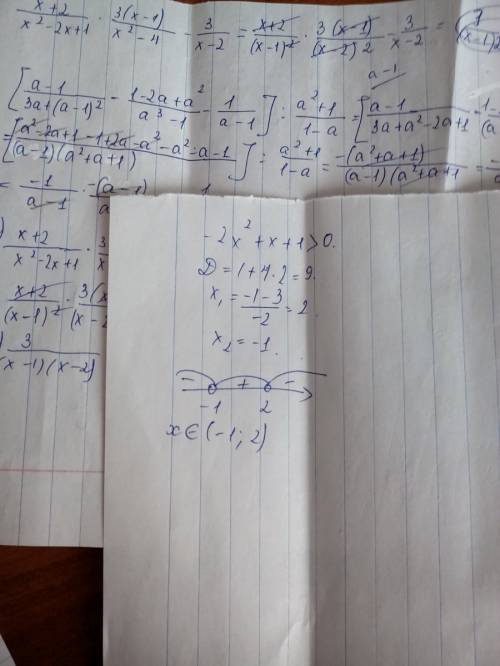 x+2/(x²-2x+1) · 3(x-1)/(x²-4) - 3/(x-2) = (x+2)/(x-1)² · 3(x-1)/(x-2)2 - 3/(x-2) =
a-1
[(a-1)/(3a+(a-1)²) - (1-2a+a²)/(a³-1) - 1/(a-1)] : (a²+1)/(1-a) = [(a-1)/(3a+a²-2a+1) -
= [(a²-2a+1-1+2a-a²-a²-a-1)/((a-1)(a²+a+1))] : (a²+1)/(1-a) = -(a²+a+1)/((a-1)(a²+a+1)) =
= -1/(a-1) · -(a-1)
(x+2)/(x²-2x+1) ·
(x+2)/(x-1)² ·
3/((x-1)(x-2))
-2x²+x+1>0.
D=1+4·2=9.
x₁=(-1-3)/-2=2.
x₂=-1.
- + -
-1 2
x∈(-1;2)